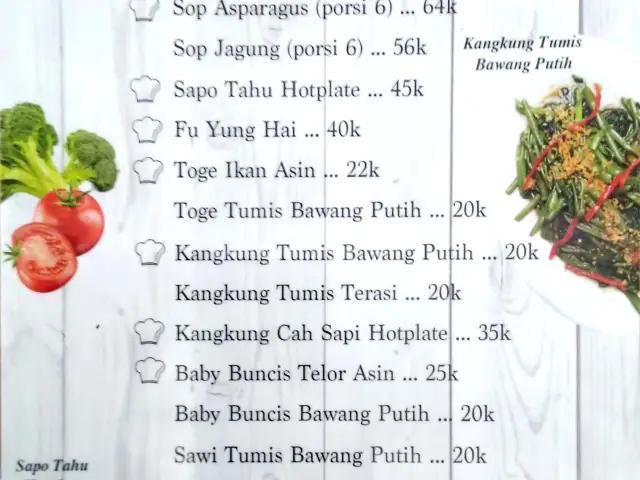 Sop Asparagus (porsi 6) ... 64k
Sop Jagung (porsi 6) ... 56k
Kangkung Tumis
Bawang Putih
Sapo Tahu Hotplate ... 45k
Fu Yung Hai ... 40k
Toge Ikan Asin ... 22k
Toge Tumis Bawang Putih ... 20k
Kangkung Tumis Bawang Putih ... 20k
Kangkung Tumis Terasi ... 20k
Kangkung Cah Sapi Hotplate ... 35k
Baby Buncis Telor Asin ... 25k
Baby Buncis Bawang Putih ... 20k
Sawi Tumis Bawang Putih ... 20k
Sapo Tahu